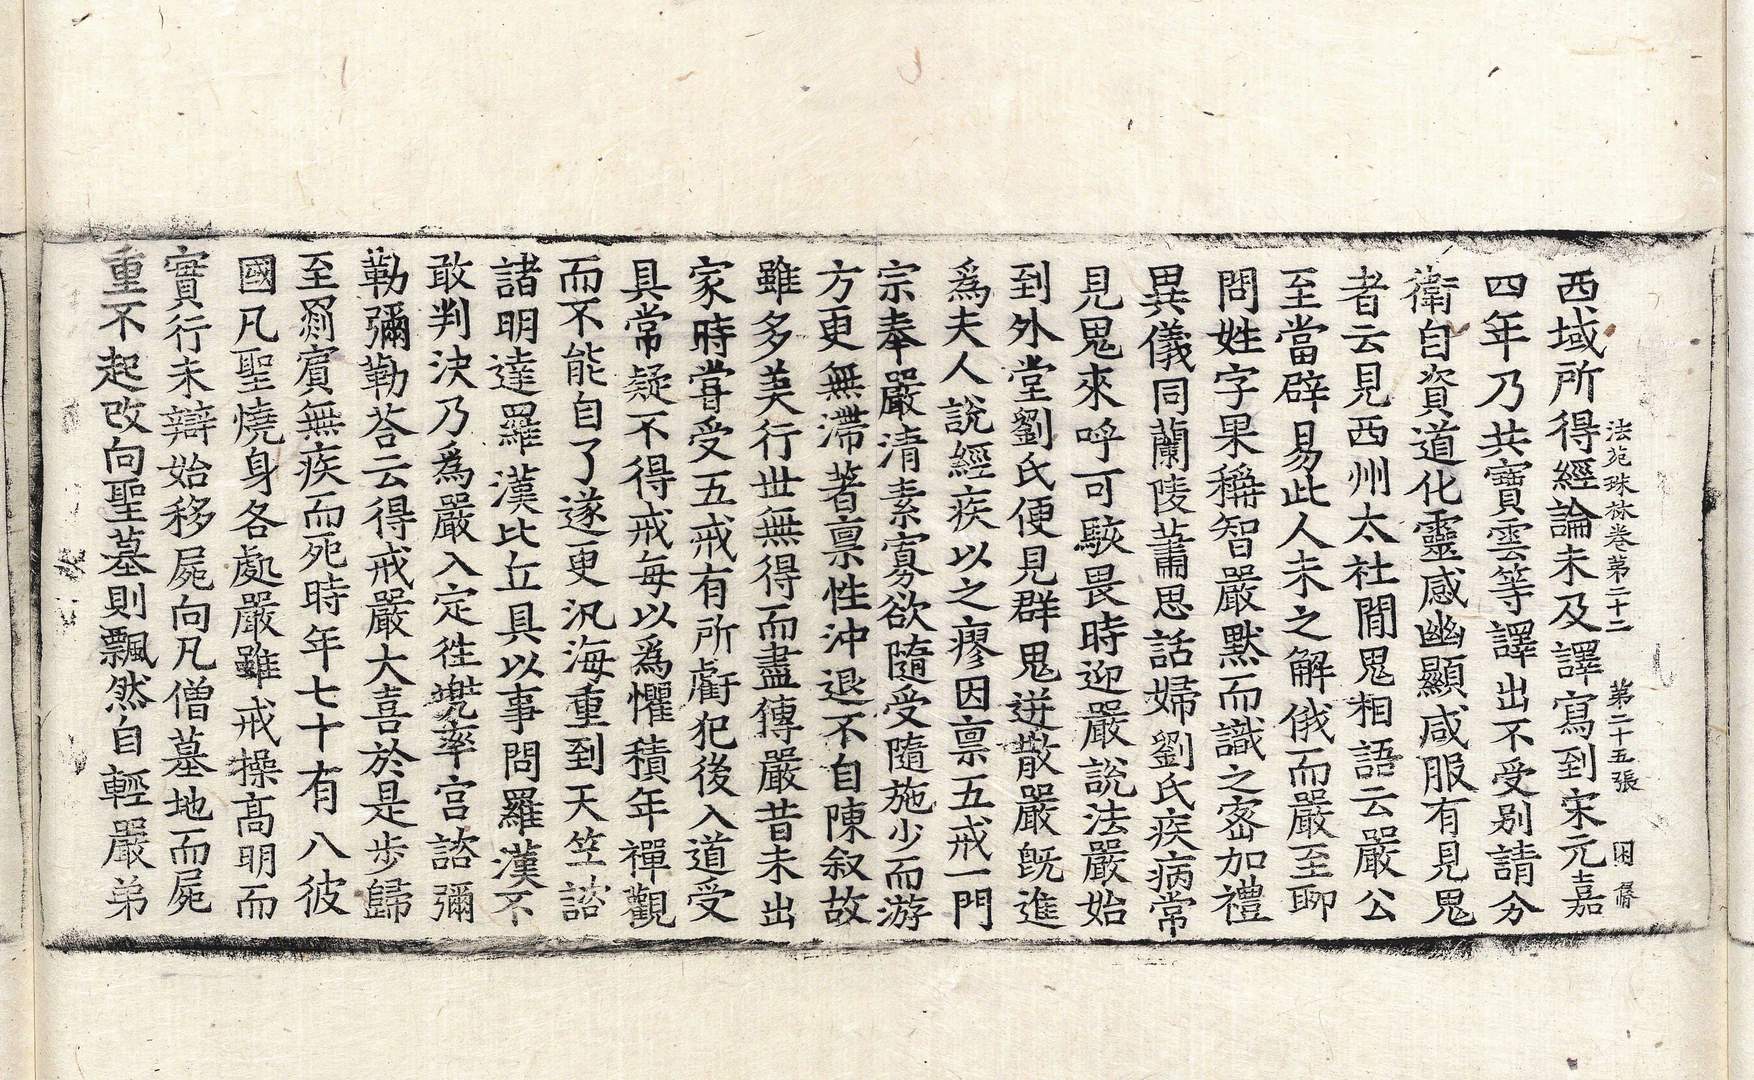 法苑珠林卷第二十二 第二十五張 困
西域所得經論未及譯寫到宋元嘉
四年乃共寶雲等譯出不受別請分
衛自資道化靈感幽顯咸服有見鬼
者云見西州太社閒鬼相語云嚴公
至當辟易此人未之解俄而嚴至聊
問姓字果稱智嚴默而識之密加禮
異儀同蘭陵蕭思話婦劉氏疾病常
見鬼來呼可駭畏時迎嚴說法嚴始
到外堂劉氏便見群鬼迸散嚴既進
為夫人說經疾以之瘳因稟五戒一門
宗奉嚴清素寡欲隨受隨施少而游
方更無滯著稟性沖退不自陳叙故
雖多美行世無得而盡傳嚴昔未出
家時嘗受五戒有所虧犯後入道受
具常疑不得戒每以為懼積年禪觀
而不能自了遂更汎海重到天竺諮
諸明達羅漢比丘具以事問羅漢不
敢判決乃為嚴入定往兠率宮諮彌
勒彌勒荅云得戒嚴大喜於是步歸
至罽賓無疾而死時年七十有八彼
國凡聖燒身各處嚴雖戒操高明而
實行未辯始移屍向凡僧墓地而屍
重不起改向聖墓則飄然自輕嚴弟